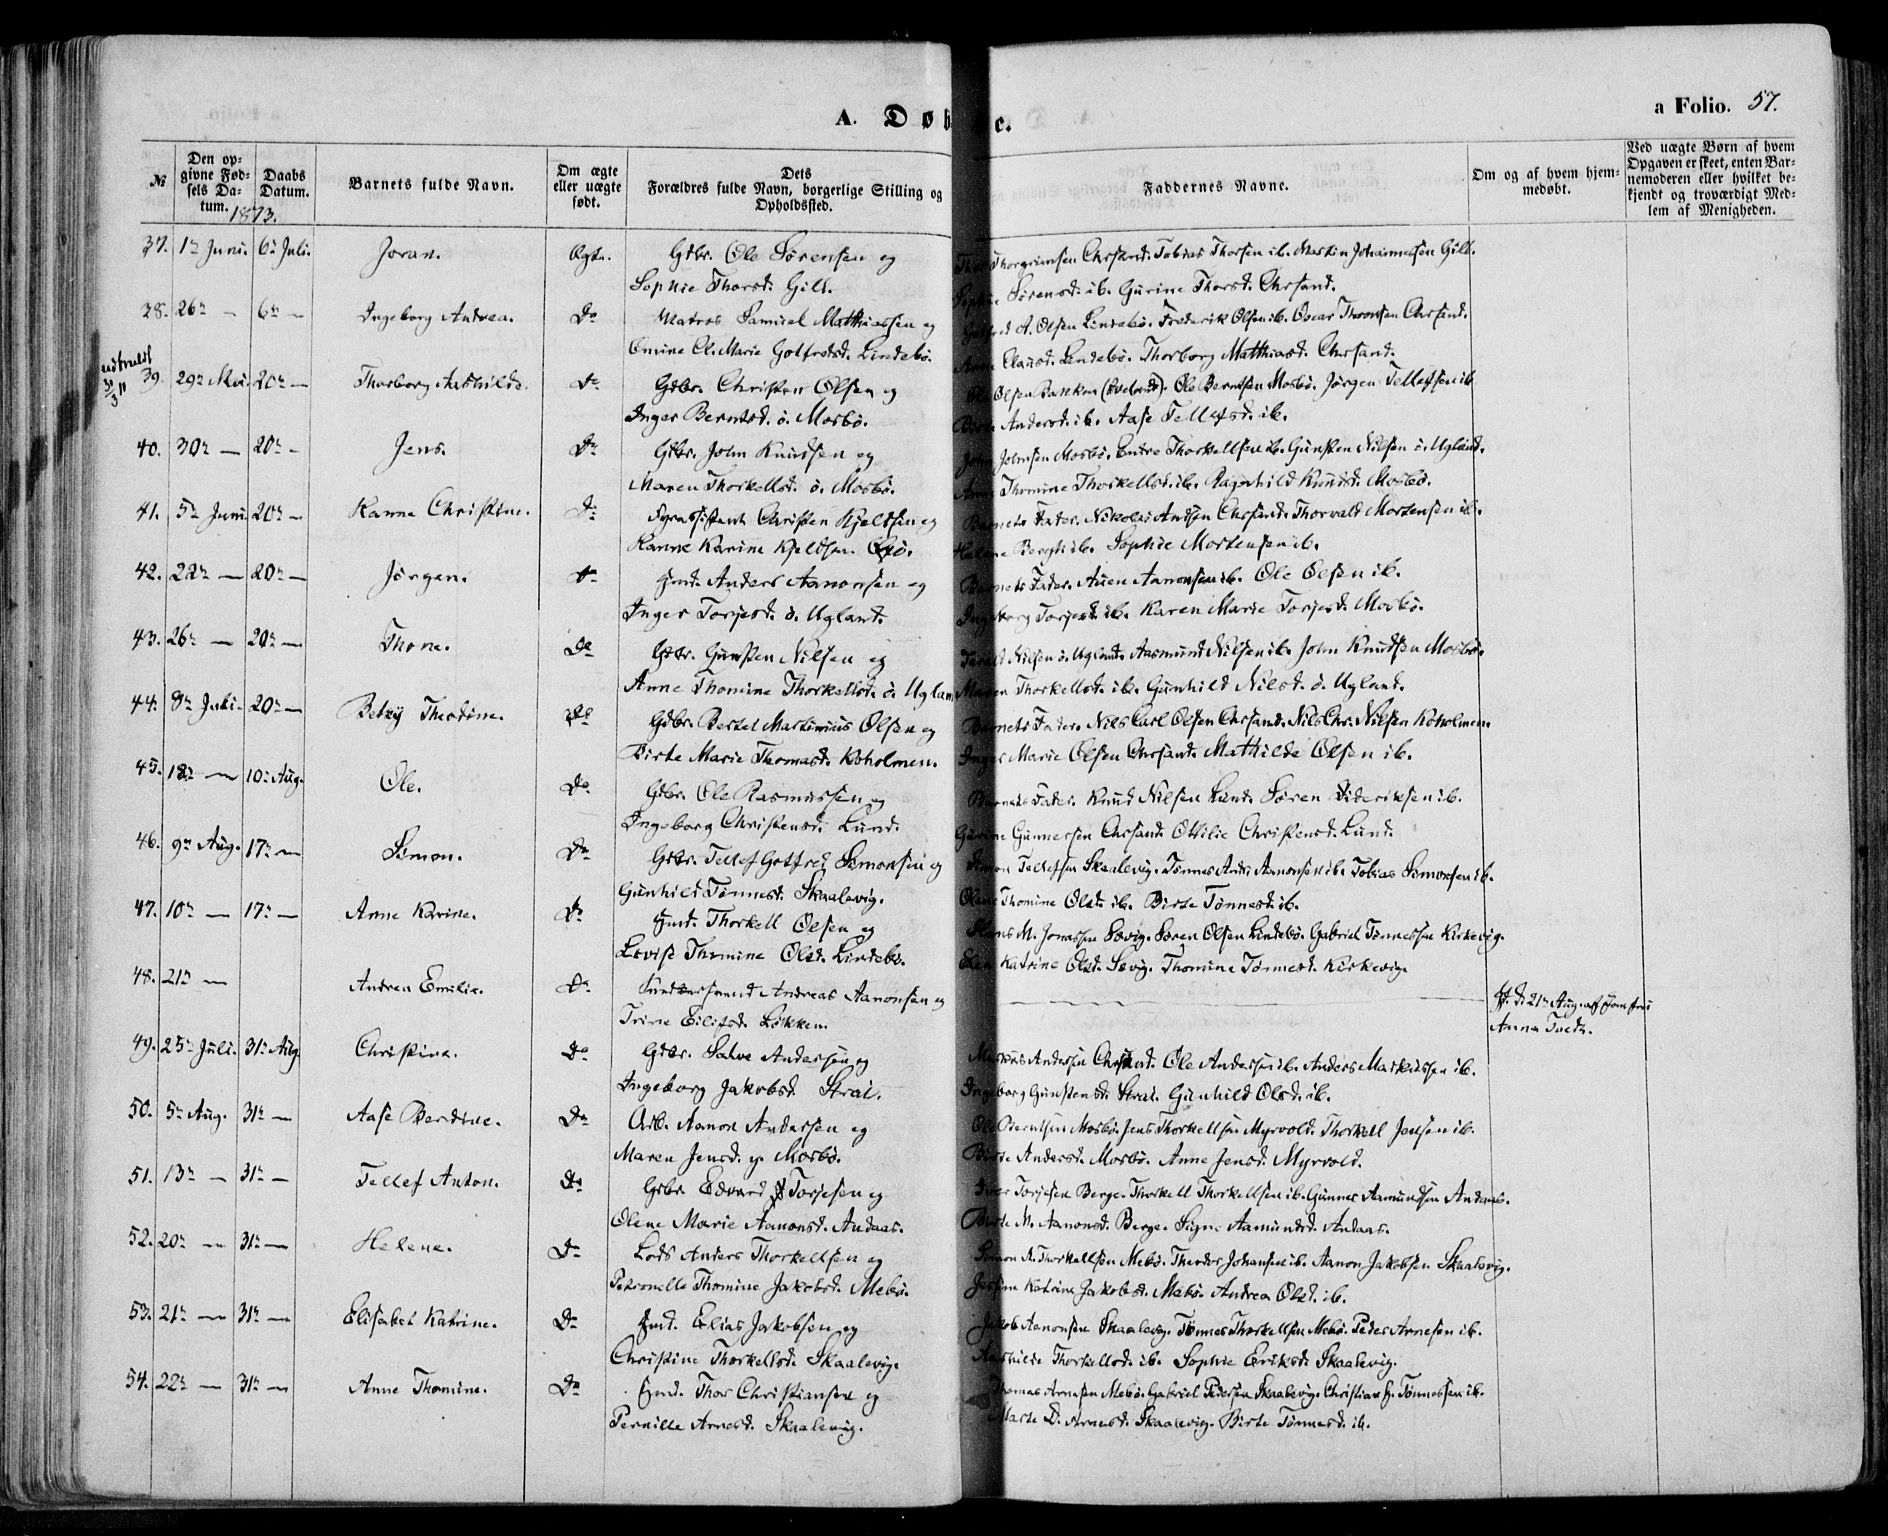 A. Døb
c.
a Folio. 57.
№
Den opgivne Fødsels Datum.
Daabs Datum.
Barnets fulde Navn.
Om ægte eller uægte født.
Dets Forældres fulde Navn, borgerlige Stilling og Opholdssted.
Faddernes Navne.
Om og af hvem hjemmedøbt.
Ved uægte Børn af hvem Opgaven er skeet, enten Barnemoderen eller hvilket bekjendt og troværdigt Medlem af Menigheden.
1873.
37. 1ste Juni. 6te Juli. Joran. Ægte. Gbr. Ole Sørensen og Thorgrimsen Chrsand. Tobias Thorsen ib. Martin Johannessen Gill.
Sophie Thorsd. Gill. Sørensd. ib. Gurine Thorsd. Chrsand.
38. 26de — 6te — Ingeborg Andrea. Do Matros Samuel Matthiassen og A. Olsen Lindebø. Frederik Olsen ib. Oscar Thorsen Chrsand.
Omine El. Marie Gotfredsd. Lindebø. Clausd. Lindebø. Thorborg Matthiasd. Chrsand.
39. 29de Mai. 20de — Thorborg Aashilde. Do Gbr. Christen Olsen og Olsen Ole Berntsen Mosbø. Jørgen Tellefsen ib
Inger Berntsd. ø. Mosbø. Andersd. ib. Aase Tellefsd. ib.
40. 30te — 20de — Jens. Do Gbr. John Knudsen og John Johnsen Mosbø. Endre Thorkellsen ib. Gunsten Nilsen ø. Ugland.
Maren Thorkellsd. ø. Mosbø. Anne Thomine Thorkellsd. ib. Ragnhild Knudsd. Mosbø.
41. 5te Juni. 20de — Hanne Christine. Do Fyrassistent Christen Kjeldsen og Barnets Fader. Nikolai Andsen Chrsand. Thorvald Mortensen ib.
Hanne Karine Kjeldsen. Oxø. Helene Bergh ib. Sophie Mortensen ib.
42. 22de — 20de — Jørgen. Do Gmd. Anders Aanonsen og Barnets Fader. Auen Aanonsen ib. Ole Olsen ib.
Inger Torjesd. ø. Ugland. Ingeborg Torjesd. ib. Karen Marie Torjesd. Mosbø.
43. 26de — 20de — Thone. Do Gbr. Gunsten Nilsen og Nilsen ø. Ugland. Aasmund Nilsen ib. John Knudsen Mosbø.
Anne Thomine Thorkellsd. ø. Ugland Maren Thorkellsd. ib. Gunhild Nilsd. ø. Ugland.
44. 8de Juli. 20de — Betzy Theodine. Do Gbr. Bertel Martinius Olsen og Barnets Fader. Nils Carl Olsen Chrsand. Nils Chr. Nilsen Koholmen.
Birte Marie Thomasd. Koholmen. Inger Marie Olsen Chrsand. Mathilde Olsen ib.
45. 18de — 10de Aug. Ole. Do Gbr. Ole Rasmussen og Barnets Fader. Knud Nilsen Lund. Søren Dideriksen ib.
Ingeborg Christensd. Lund. Gurine Gunnersen Chrsand. Ottilie Christensd. Lund.
46. 9de Aug. 17de — Simon. Do Gbr. Tellef Gotfred Simonsen og Simon Tellefsen Skaalevig. Tønnes Ands Aanonsen ib. Tobias Simonsen ib.
Gunhild Tønnesd. Skaalevig. Olene Thomine Olsd. ib. Birte Tønnesd. ib.
47. 10de — 17de — Anne Karine. Do Gmd. Thorkell Olsen og Hans M. Jonassen Søvig. Søren Olsen Lindebø. Gabriel Tønnessen Kirkevig.
Lovise Thomine Olsd. Lindebø. Elen Katrine Olsd. Søvig. Thomine Tønnesd. Kirkevig.
48. 21de — Andrea Emilie. Do Andreas Aanonsen og H. d. 21de Aug. af Jomfru
Trine Eilifsd. Løkken. Anna
49. 25de Juli. 31te Aug. Christine. Do Gbr. Salve Andersen og Markus Andersen Chrsand. Ole Andersen ib. Anders Markussen ib.
Ingeborg Jakobsd. Strai. Ingeborg Gunstensd. Strai. Gunhild Olsd. ib.
50. 5te Aug. 31te — Aase Berdine. Do Arb. Aanon Andersen og Ole Berntsen Mosbø. Jens Thorkellsen Myrvold. Thorkell Jensen ib.
Maren Jensd. y. Mosbø. Birte Andersd. Mosbø. Anne Jensd. Myrvold.
51. 13de — 31te — Tellef Anton. Do Gbr. Edvard Torjesen og Iver Torjesen Berge. Thorkell Thorkellsen ib. Gunner Aamundsen Andaas.
Olene Marie Aanonsd. Andaas. Birte M. Aanonsd. Berge. Signe Aamundsd. Andaas.
52. 20de — 31te — Helene. Do Lods Anders Thorkellsen og Simon A. Thorkellsen Mebø. Theodor Johansen ib. Aanon Jakobsen Skaalevig.
Petronelle Thomine Jakobsd. Mebø. Jensine Katrine Jakobsd. Mebø. Andrea Olsd. ib.
53. 21de — 31te — Elisabet Katrine. Do Gmd. Elias Jakobsen og Jakob Aanonsen Skaalevig. Tønnes Thorkellsen Mebø. Peder Arnesen ib.
Christine Thorkellsd. Skaalevig. Aashilde Thorkellsd. ib. Sophie Eriksd. Skaalevig.
54. 22de — 31te — Anne Thomine. Do Gmd. Thor Christiansen og Thomas Arnesen Mebø. Gabriel Pedersen Skaalevig. Christian G. Tønnessen ib.
Pernille Arnesd. Skaalevig. Marte D. Arnesd. Skaalevig. Birte Tønnesd. ib.